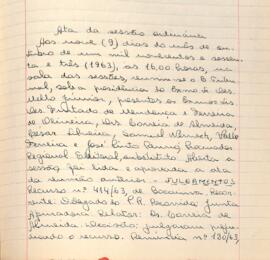 Ata da sessão ordinária
Aos nove (9) dias do mês de ou-
tubro de um mil novecentos e sessen-
ta e três (1963), as 16,00 horas, na
sala das sessões, reuniu-se o E. Tribu-
nal, sob a presidência do Exmo. Sr. Des.
Mello Junior, presentes os Exmos. srs.
Des. Furtado de Mendonça e Ferreira
de Oliveira, Drs. Correia de Almeida,
Cesar Silveira, Samuel, Valle
Ferreira e José Pinto, Procurador
Regional Eleitoral, substituto. Aberta a
sessão, foi lida e aprovada a ata
da reunião anterior. - JULGAMENTOS:
Recurso nº 414/63, de Bocaiuva. Recor-
rente: Delegado do P.R. Recorrida: Junta
Apuradora. Relator: Dr. Correia de
Almeida. Decisão: julgaram preju-
dicado o recurso. Denúncia nº 130/63,